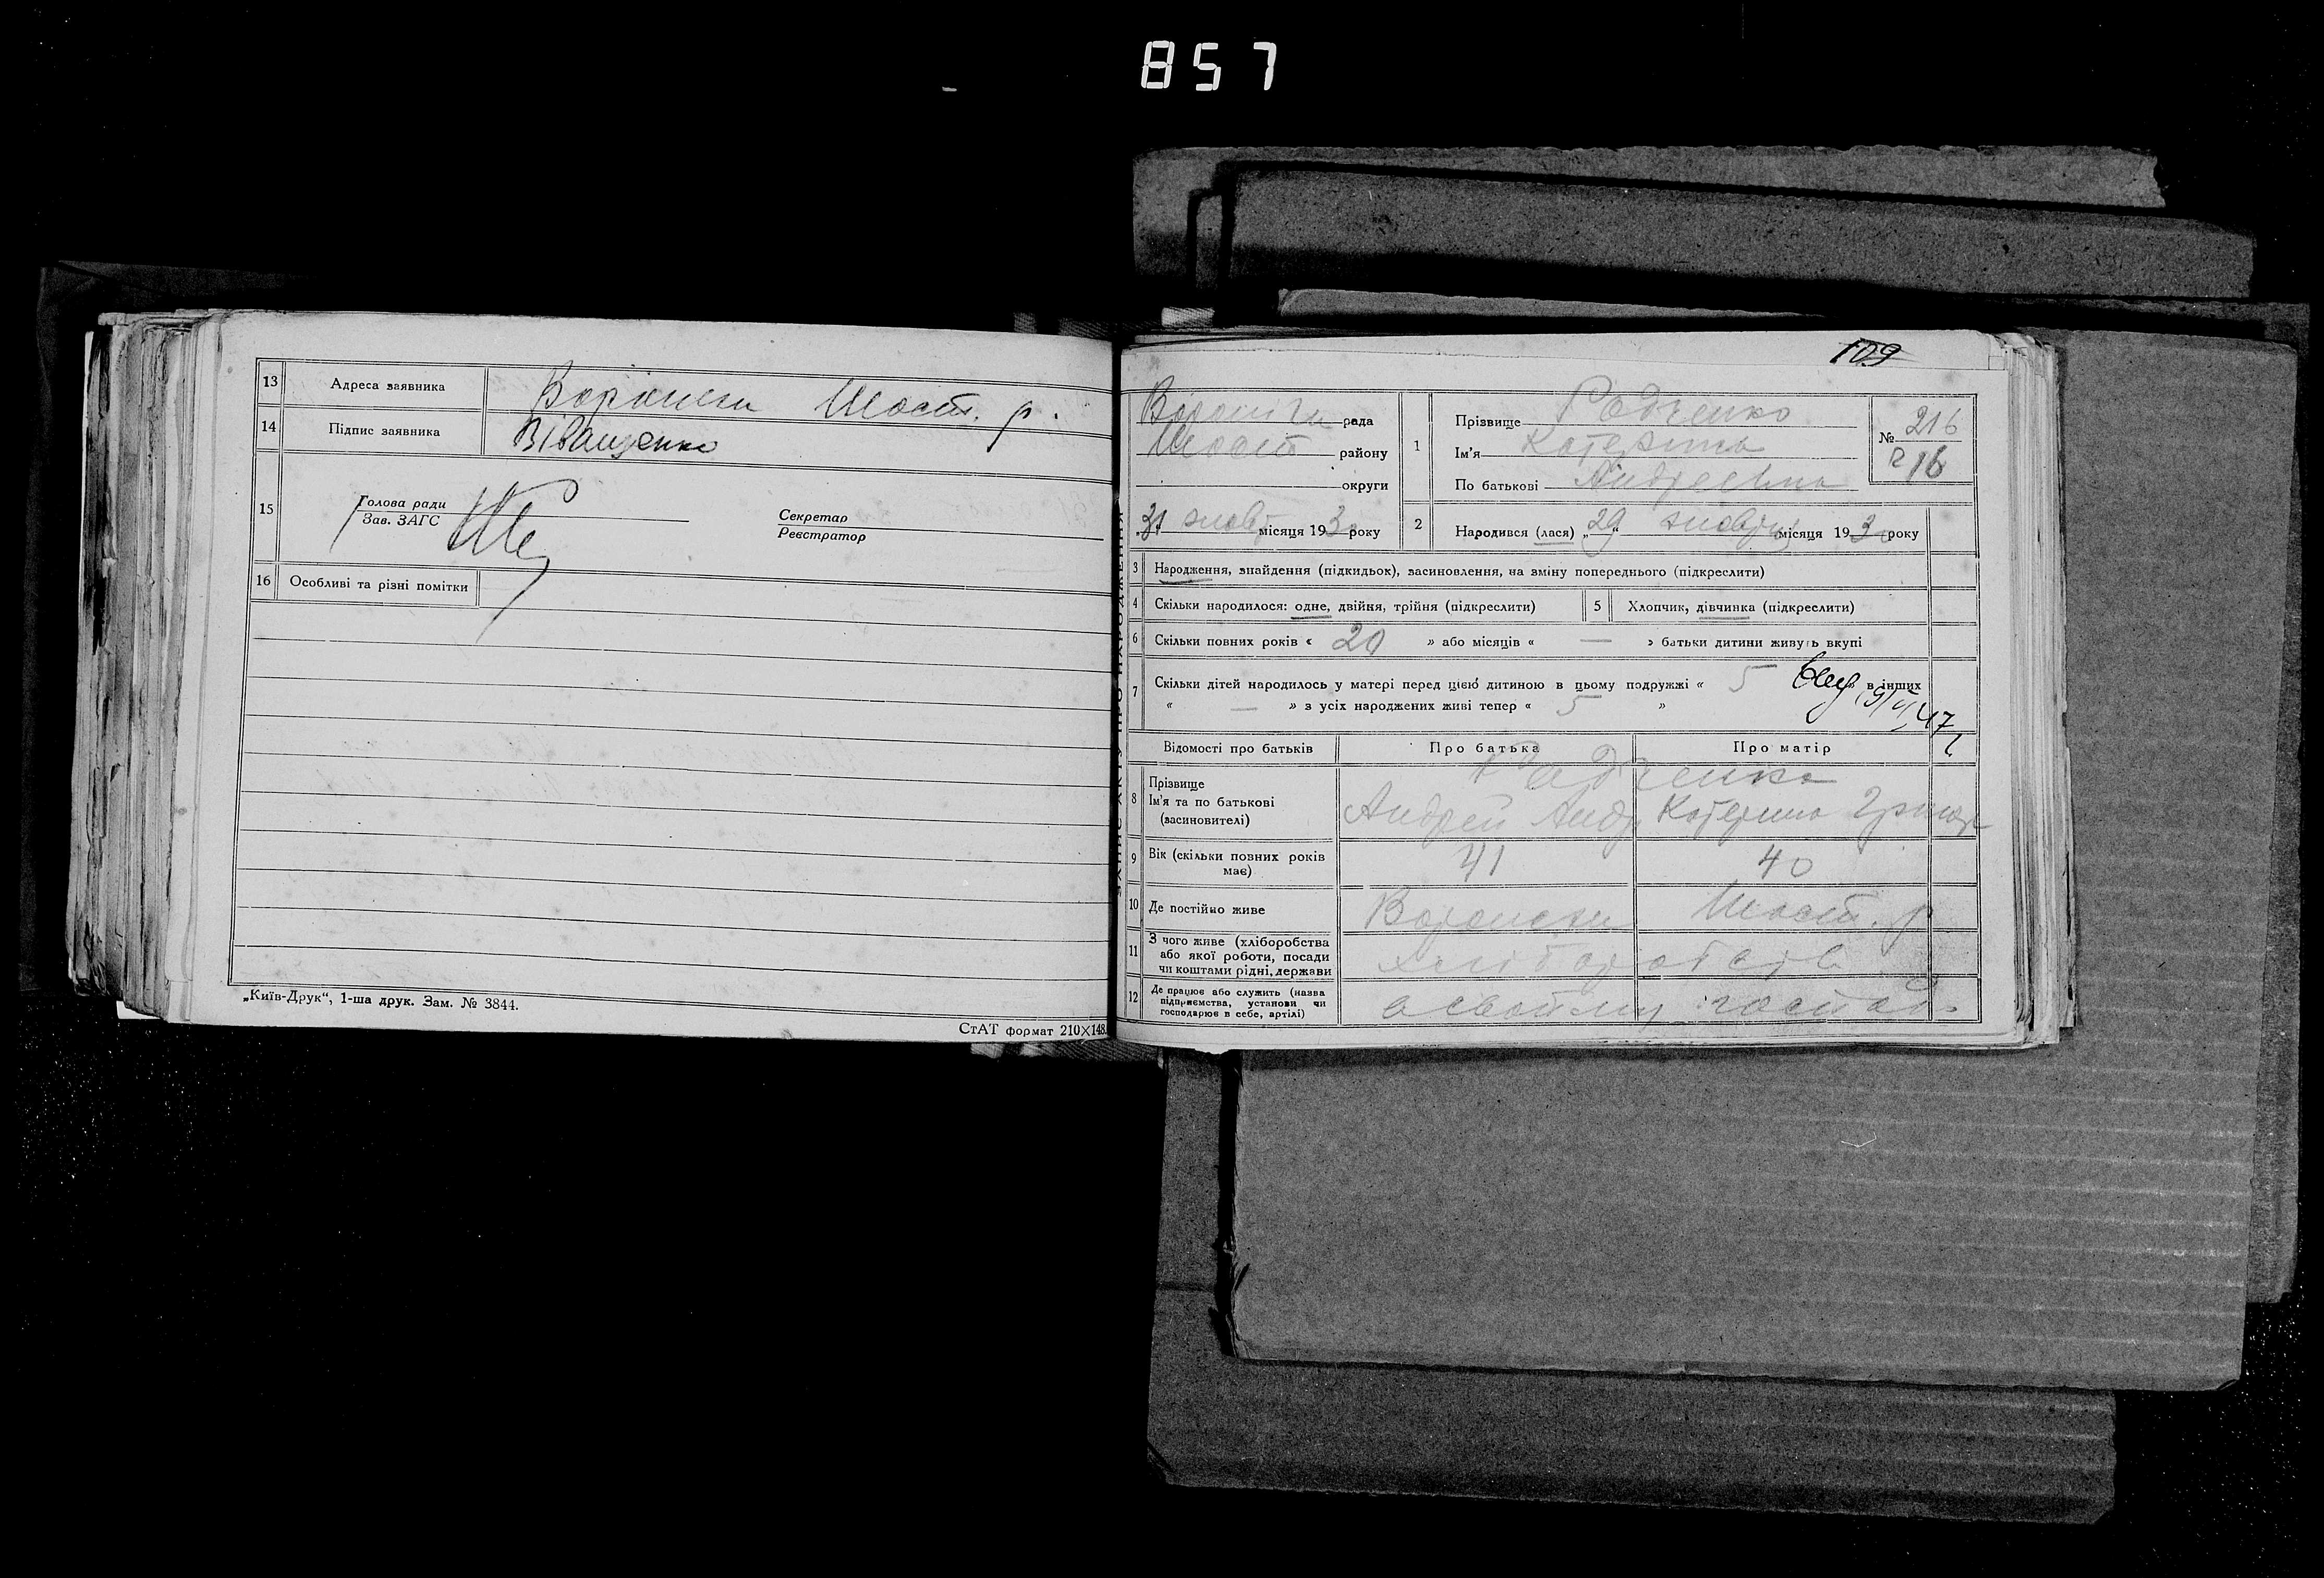 857
13 Адреса заявника Вороніж Шост. р.
14 Підпис заявника ВІващенко
15 Голова ради
Зав. ЗАГС
Секретар
Реєстратор
16 Особливі та різні помітки
„Київ-Друк“, 1-ша друк. Зам. № 3844.
СтАТ формат 210×148.
109
рада
Шост району
округи
31 жовт місяця 1930 року
1 Прізвище Радченко
Ім'я Катерина
По батькові Андреевна
№ 216
216
2 Народився (лася) „29“ жовтня місяця 1930 року
3 Народження, знайдення (підкидьок), засиновлення, на зміну попереднього (підкреслити)
4 Скільки народилося: одне, двійня, трійня (підкреслити)
5 Хлопчик, дівчинка (підкреслити)
6 Скільки повних років « 20 » або місяців « — » батьки дитини живуть вкупі
7 Скільки дітей народилось у матері перед цією дитиною в цьому подружжі « 5 » в інших
« — » з усіх народжених живі тепер « 5 »
Відомості про батьків Про батька Про матір
8 Прізвище
Ім'я та по батькові
(засиновителі)
Радченко
Андрей Андр. Катерина Григор
9 Вік (скільки повних років
має)
41 40
10 Де постійно живе Шост. р
11 З чого живе (хліборобства
або якої роботи, посади
чи коштами рідні, держави
хліборобств
12 Де працює або служить (назва
підприємства, установи чи
господарює в себе, артілі)
в своїму господ.